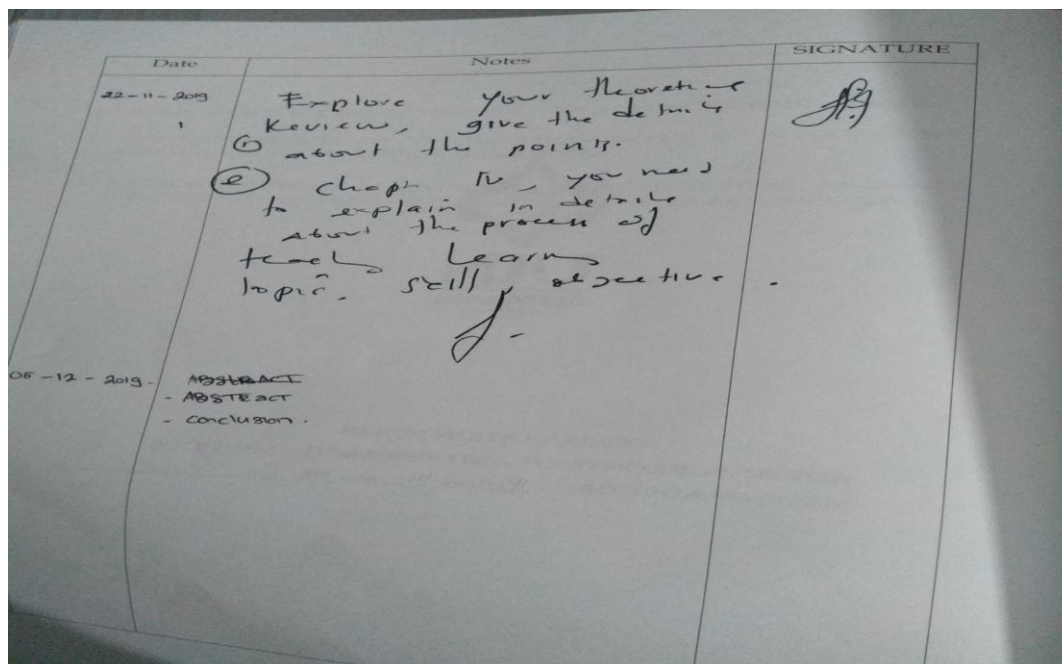 Date Notes SIGNATURE
22-11-2019 Explore your theoretical
1 Review, give the details
① about the points.
② chapt IV, you need
to explain in details
about the process of
teach learn
topic, skill, objective.
05-12-2019. ABSTRACT
- ABSTRACT
- conclusion.